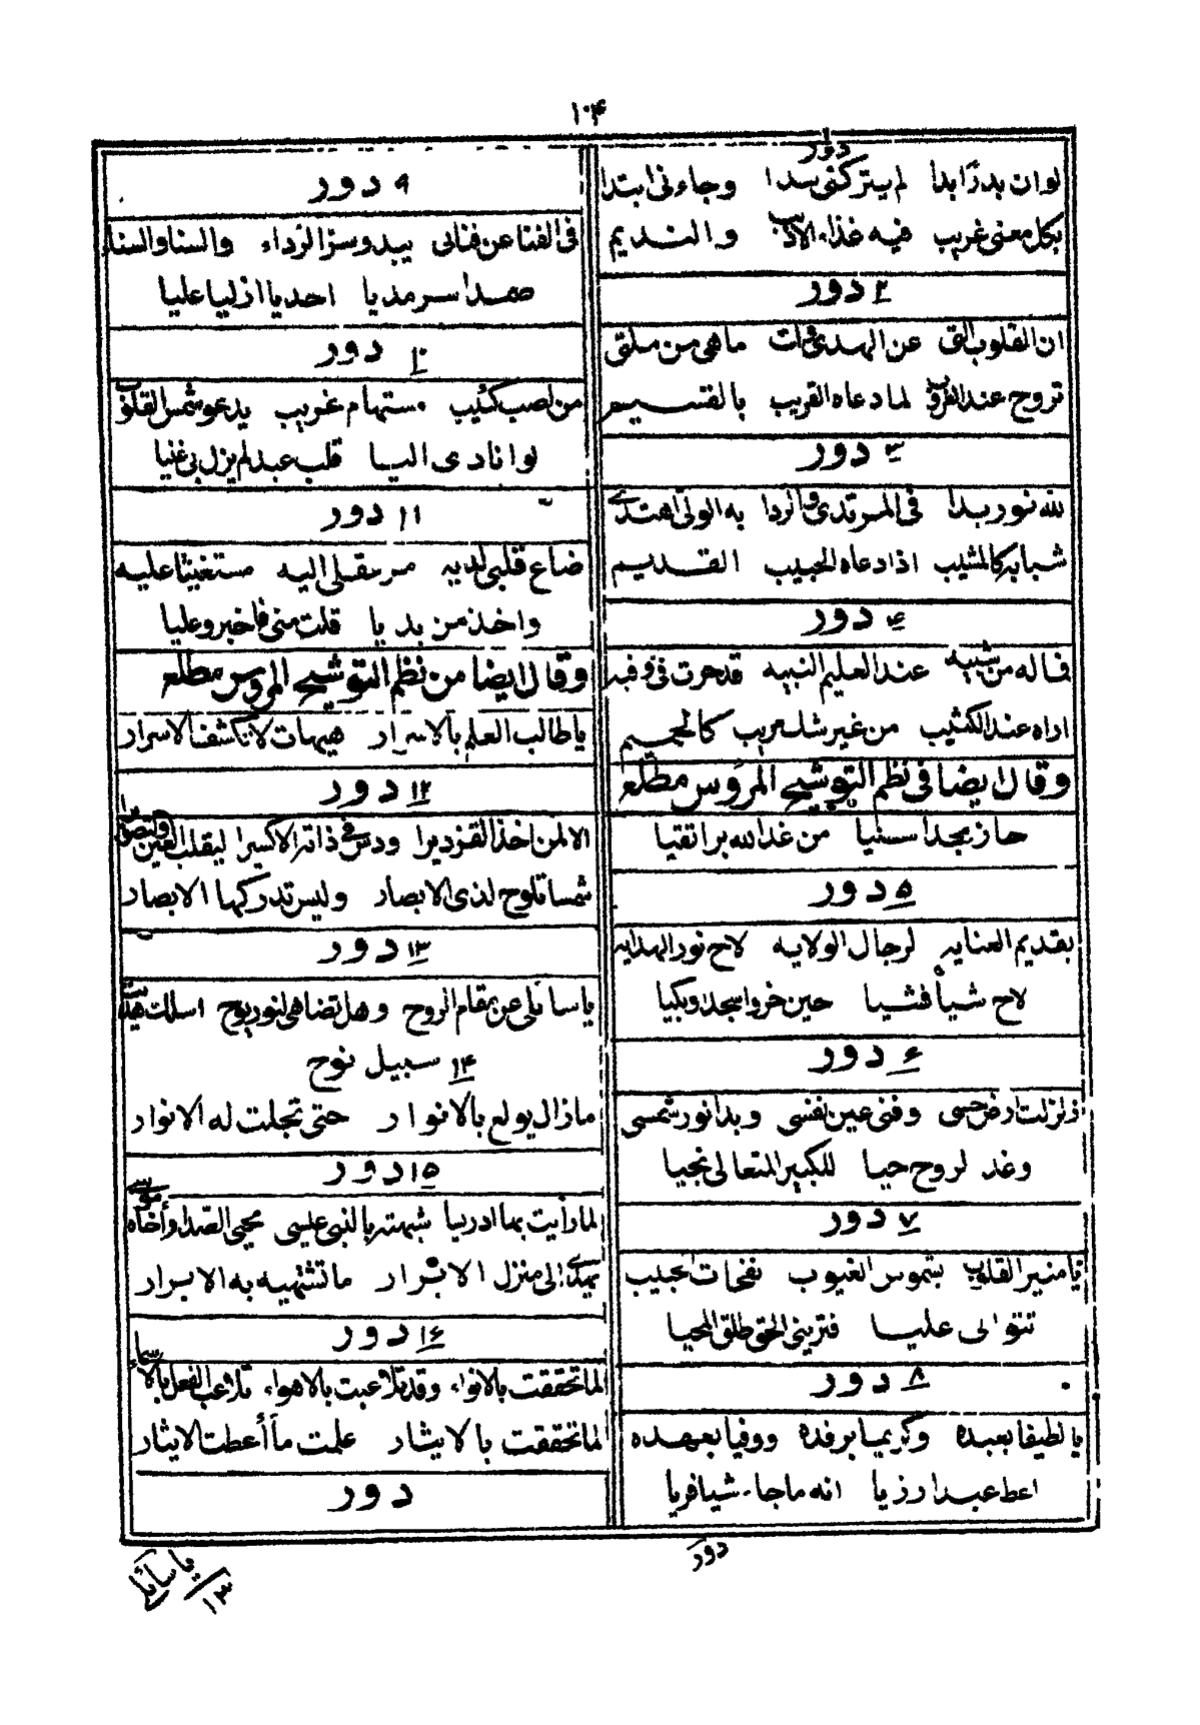 ١٠٤
دور ١
لو ان بدرا بدا لم يتركني سدا وجاء في ابتدا
بكل معنى غريب فيه غذاء الاديب والنديم
٢ دور
ان القلوب التي عن الهدى ولت ما هي من ملتي
تروح عند الغروب لما دعاه القريب بالقسيم
٣ دور
لله نور بدا في المرتدى والردا به الولي اهتدى
شبابه كالمشيب اذا دعاه الحبيب القديم
٤ دور
فما له من شبيه عند العليم النبيه قد حرت في وفيه
اراه عند الكثيب من غير شك مريب كالجحيم
وقال ايضا في نظم التوشيح المروس مطلعه
حاز مجدا سنيا من غدا لله برا تقيا
٥ دور
بقديم العنايه لرجال الولايه لاح نور الهدايه
لاح شيأ فشيا حين خروا سجدا وبكيا
٦ دور
زلزلت ارض حسى وفنى عين نفسى وبدا نور شمسى
وغد لروح حيا للكبير المتعالى نجيا
٧ دور
يا منير القلوب بشموس الغيوب نفحات الحبيب
تتوالى عليا فترينى الحق طلق المحيا
٨ دور
يا لطيفا بعبده وكريما برفده ووفيا بعهده
اعط عبدا رزيا انه ما جاء شيا فريا
دور
٩ دور
فى الفنا عن فنائى يبدو سر الرداء والسنا والسناء
صمدا سرمديا احديا ازليا عليا
١٠ دور
من لصب كئيب مستهام غريب يدعو شمس القلوب
لو انادى اليا قلب عبد لم يزل بى غنيا
١١ دور
ضاع قلبى لديه مر بقلى اليه مستغيثا عليه
واخذ من يديا قلت منى فاخبرو عليا
وقال ايضا من نظم التوشيح المروس مطلعه
يا طالب العلم بالاسرار هيهات لا تكشف الاسرار
١٢ دور
الا لمن اخذ القزديرا ودس فى ذاته الاكسيرا ليقلب العين والتصويرا
شمسا تلوح لذى الابصار وليس تدركها الابصار
١٣ دور
يا سائلى عن مقام الروح وهل تضاهى لنور يوح اسلك هديت
١٤ سبيل نوح
ما زال يولع بالانوار حتى تجلت له الانوار
١٥ دور
لما رأيت بما ادريسا شبهته بالنبى عيسى محيى الصدا وأخاه موسى
يهدى الى منزل الابرار ما تشتهيه به الابرار
١٦ دور
لما تحققت بالانواء وقد تلاعبت بالاهواء تلاعب الفعل بالاسماء
لما تحققت بالايثار علمت ما أعطت الايثار
دور
يا سائلى
١٣